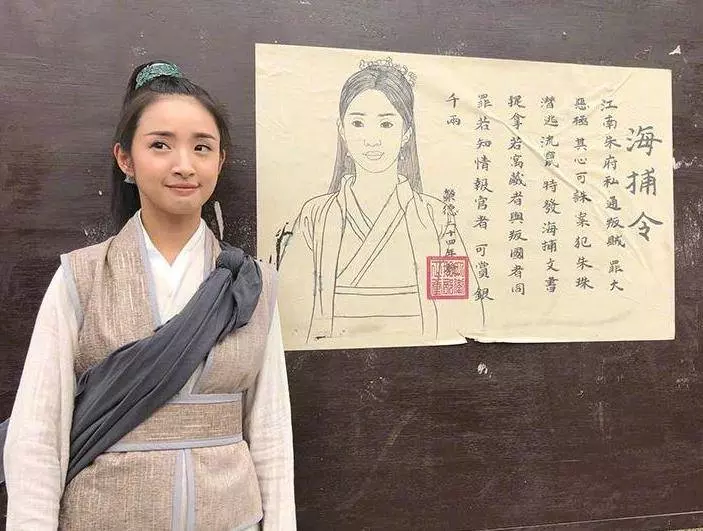 海捕令
江南朱府私通叛賊 罪大
惡極 其心可誅 案犯朱珠
潛逃流竄 特發海捕文書
捉拿若窩藏者與叛國者同
罪若知情報官者 可賞銀
千兩
榮德二十四年